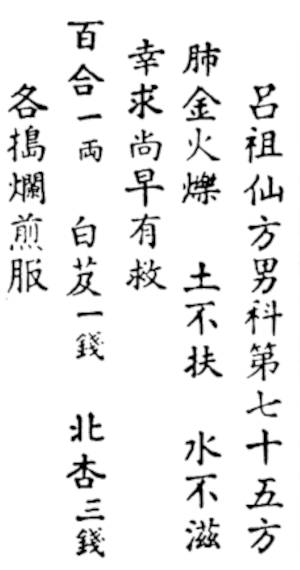 呂祖仙方男科第七十五方
肺金火爍　土不扶　水不滋
幸求尚早有救
百合一両　白芨一錢　北杏三錢
各搗爛煎服